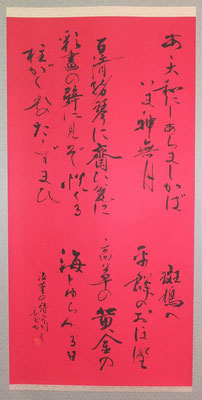 あゝ大和にしあらましかば
いま神無月
斑鳩へ
平群のおほ野
高草の黄金の
海とゆらゆる日
百済緒琴に斎ひ瓮に
彩畫の壁に見ぞ恍くる
柱がくれのたゝずまひ
泣菫の詩